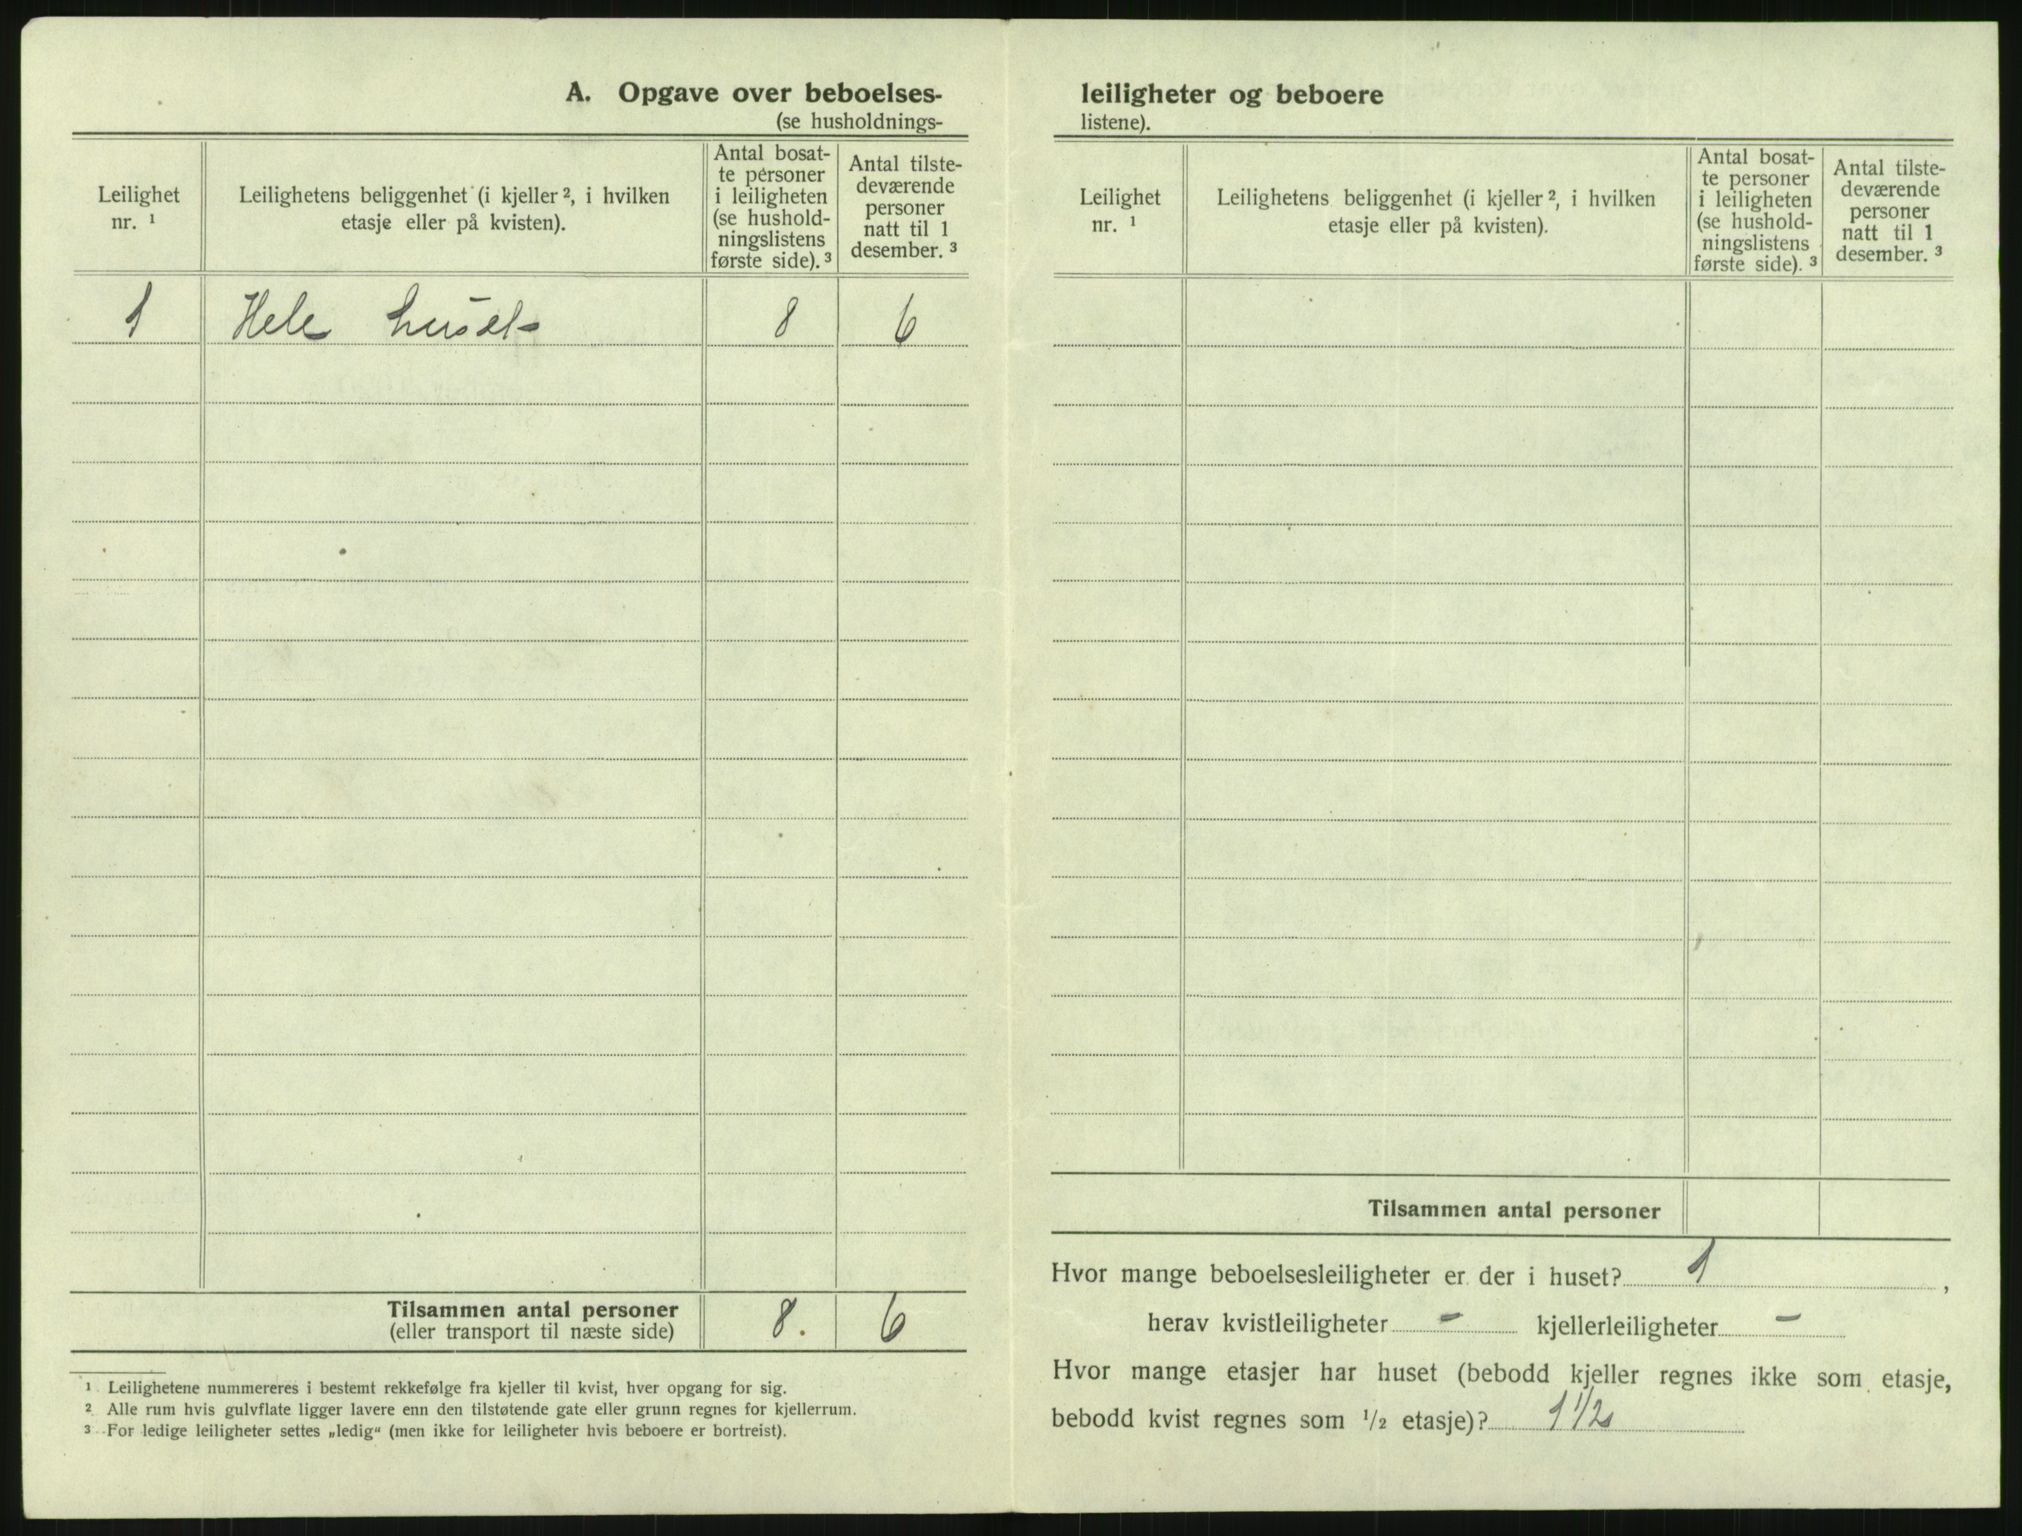 A. Opgave over beboelses-
(se husholdnings-
Leilighet
nr. ¹
Leilighetens beliggenhet (i kjeller ², i hvilken
etasje eller på kvisten).
Antal bosat-
te personer
i leiligheten
(se hushold-
ningslistens
første side). ³
Antal tilste-
deværende
personer
natt til 1
desember. ³
1 Hele huset 8 6
Tilsammen antal personer 8. 6
(eller transport til næste side)
¹ Leilighetene nummereres i bestemt rekkefølge fra kjeller til kvist, hver opgang for sig.
² Alle rum hvis gulvflate ligger lavere enn den tilstøtende gate eller grunn regnes for kjellerrum.
³ For ledige leiligheter settes „ledig“ (men ikke for leiligheter hvis beboere er bortreist).
leiligheter og beboere
listene).
Leilighet
nr. ¹
Leilighetens beliggenhet (i kjeller ², i hvilken
etasje eller på kvisten).
Antal bosat-
te personer
i leiligheten
(se hushold-
ningslistens
første side). ³
Antal tilste-
deværende
personer
natt til 1
desember. ³
Tilsammen antal personer
Hvor mange beboelsesleiligheter er der i huset? 1 ,
herav kvistleiligheter - kjellerleiligheter -
Hvor mange etasjer har huset (bebodd kjeller regnes ikke som etasje,
bebodd kvist regnes som ½ etasje)? 1 1/2